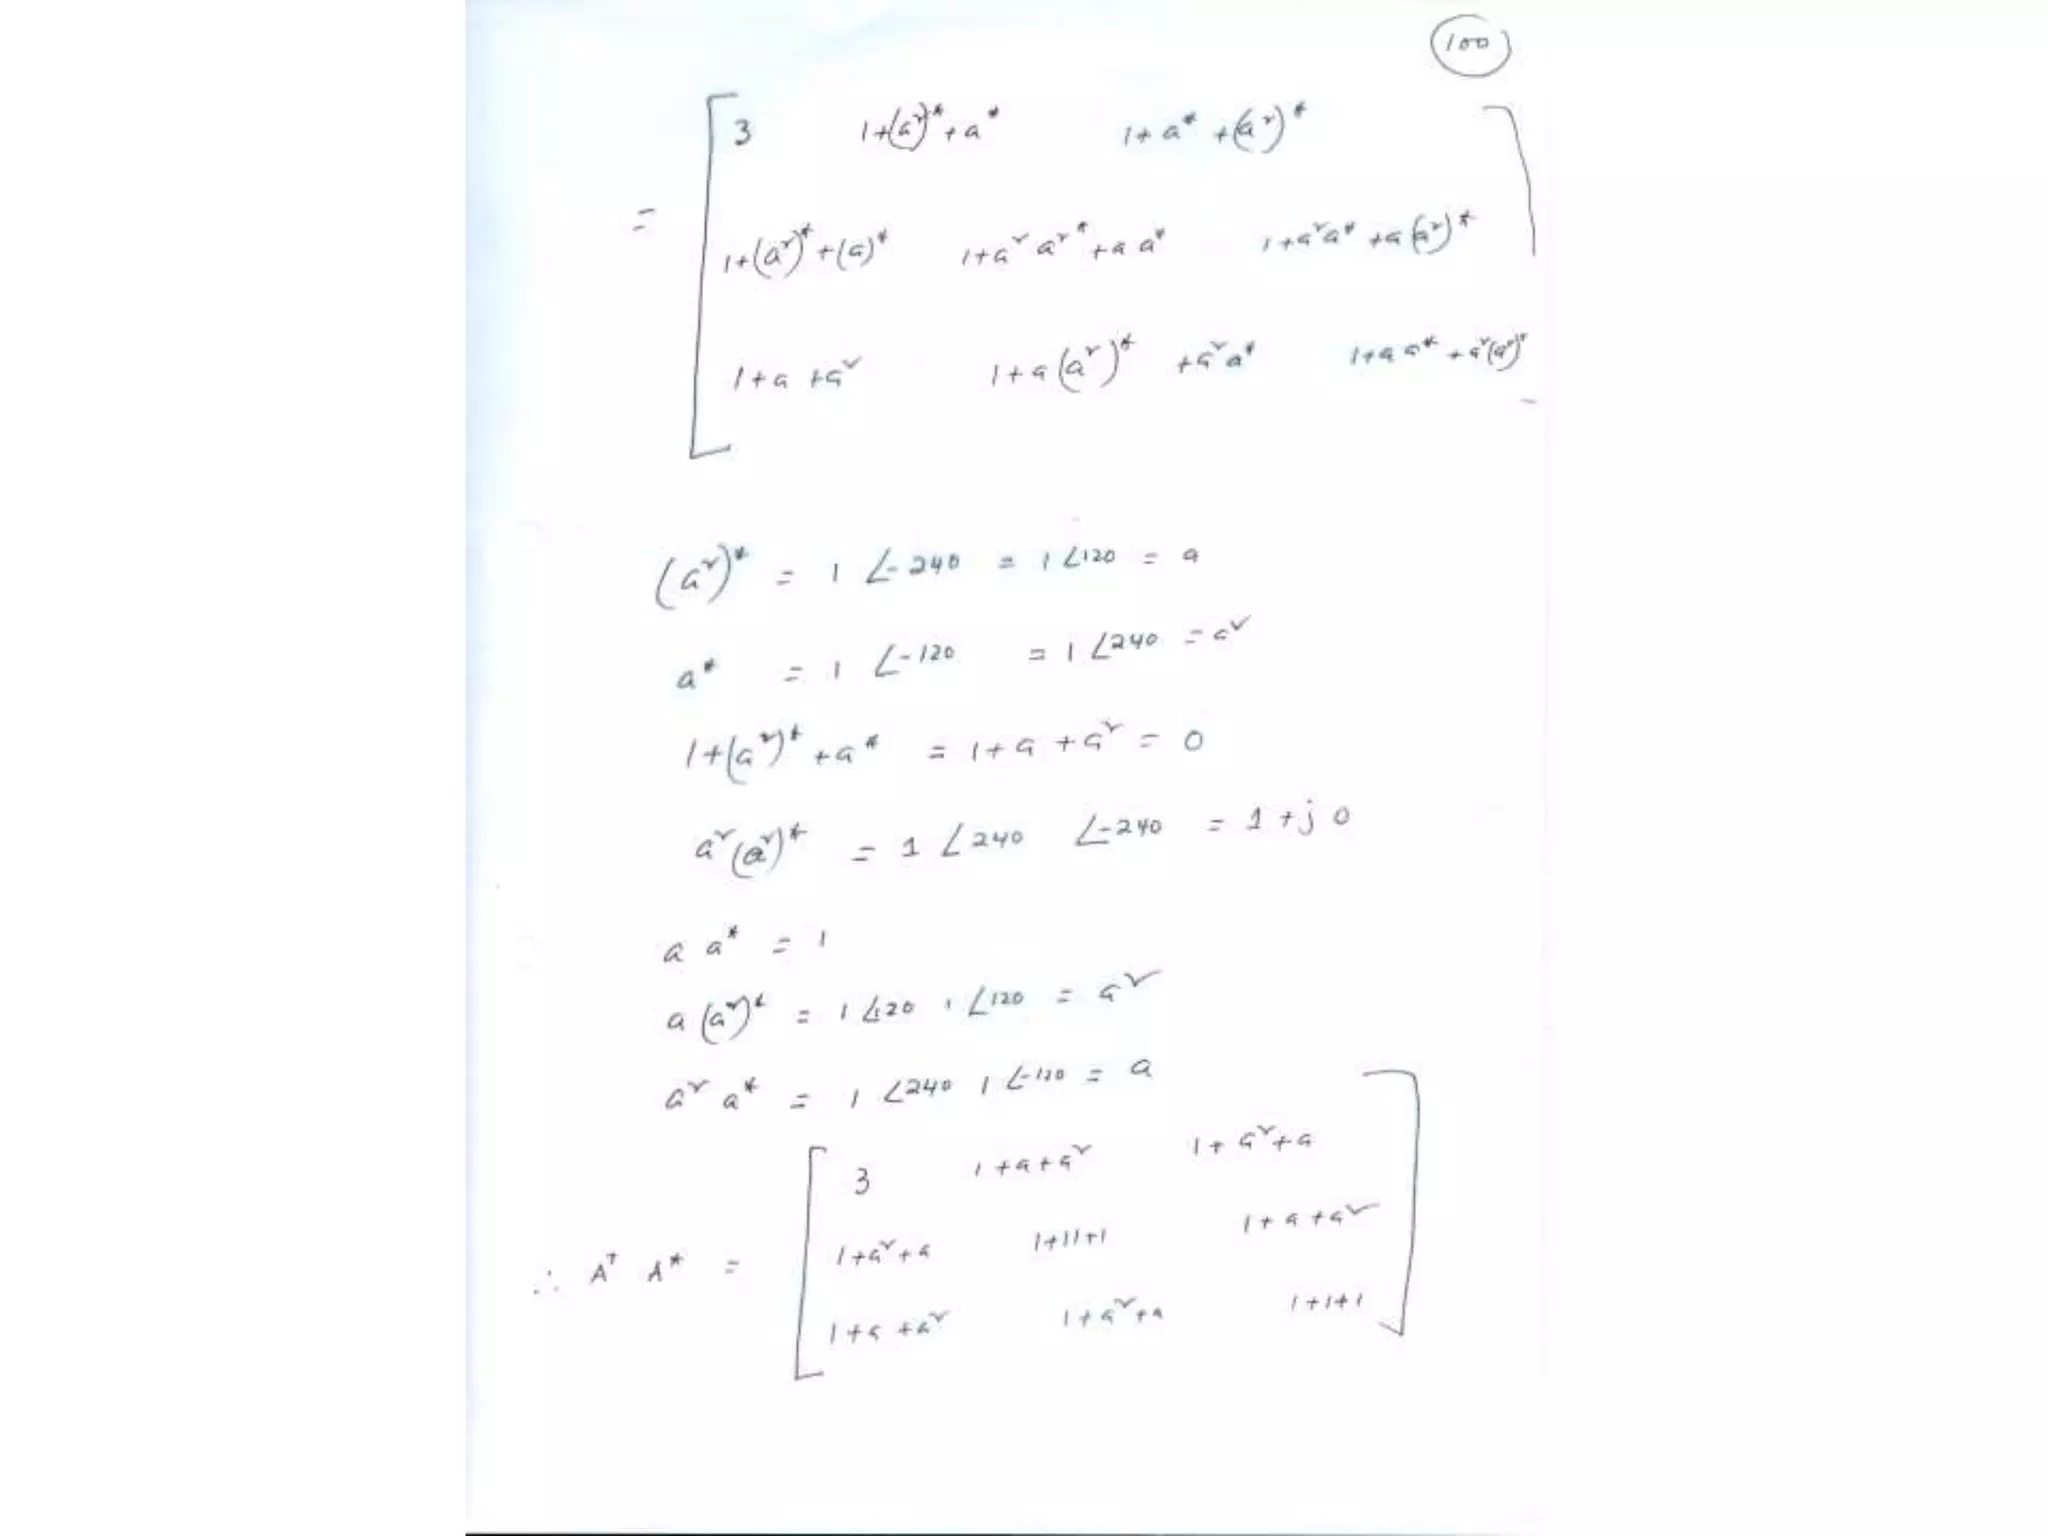 100
3 1+(a²)*+a* 1+a*+(a²)*
=
1+(a²)*+(a)* 1+a² a²*+a a* 1+a²a*+a(a²)*
1+a+a² 1+a(a²)* +a²a* 1+a a*+a²(a²)*
(a²)* = 1 ∠-240 = 1∠120 = a
a* = 1 ∠-120 = 1∠240 = a²
1+(a²)*+a* = 1+a+a² = 0
a²(a²)* = 1∠240 ∠-240 = 1+j0
a a* = 1
a(a²)* = 1∠120 . ∠120 = a²
a² a* = 1 ∠240 1∠-120 = a
3 1+a+a² 1+a²+a
∴ Aᵀ A* = 1+a²+a 1+11+1 1+a+a²
1+a+a² 1+a²+a 1+1+1